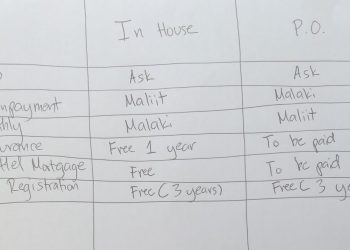 In House P.O.
Ask Ask
npayment Maliit Malaki
thly Malaki Maliit
urance Free 1 year To be paid
ttel Mortgage Free To be paid
Registration Free (3 years) Free (3 ye